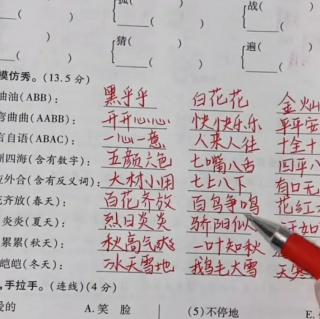 孤( 战(
( ) ( ) (
猜( 遍(
( ) ( ) (
模仿秀。(13.5分)
油油(ABB): 黑乎乎 白花花 金灿
弯曲曲(AABB): 开开心心 快快乐乐 平平安
言自语(ABAC): 一心一意 人来人往 十全十
湖四海(含有数字): 五颜六色 七嘴八舌 四平八
应外合(含有反义词): 大材小用 七上八下 有口无
花齐放(春天): 百花齐放 百鸟争鸣 花红
炎炎(夏天): 烈日炎炎 骄阳似
累累(秋天): 秋高气爽 一叶知秋
皑皑(冬天): 冰天雪地 鹅毛大雪 天寒
,手拉手。(连线)(4分)
爱的 A.笑 脸 (5)不停地 E.